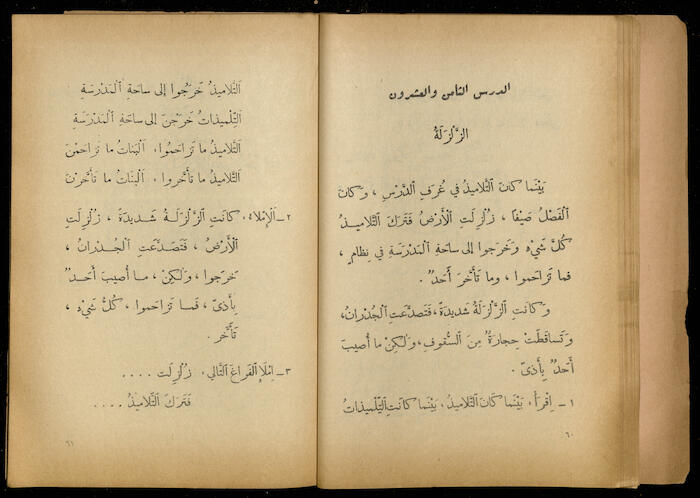 الدرس الثامن والعشرون
الزَّلْزَلَةُ
بَيْنَمَا كَانَ التَّلاميذُ في غُرَفِ الدَّرْسِ ، وَكَانَ
الْفَصْلُ صَيْفًا ، زُلْزِلَتِ الأَرْضُ فَتَرَكَ التَّلاميذُ
كُلَّ شَيْءٍ وَخَرَجوا إلى ساحَةِ الْمَدْرَسَةِ في نِظامٍ ،
فما تَزاحَموا ، وما تَأَخَّرَ أَحَدٌ .
وَ كانَتِ الزَّلْزَلَةُ شَديدَةً، فَتَصَدَّعَتِ الْجُدْرانُ،
وَتَساقَطَتْ حِجارَةٌ مِنَ السُّقوفِ، وَلٰكِنْ ما أُصيبَ
أَحَدٌ بِأَذىً .
١ – اِقْرَأْ : بَيْنَما كَانَ التَّلاميذُ، بَيْنَما كانَتِ التِّلْميذاتُ
٦٠
التَّلاميذُ خَرَجُوا إلى ساحَةِ الْمَدْرَسَةِ
التِّلْميذاتُ خَرَجْنَ إلى ساحَةِ الْمَدْرَسَةِ
التَّلاميذُ ما تَزاحَمُوا، الْبَناتُ ما تَزاحَمْنَ
التَّلاميذُ ما تَأَخَّروا ، الْبَناتُ ما تَأَخَّرْنَ
٢ – اَلْإِمْلاءُ : كانَتِ الزَّلْزَلَةُ شَديدَةً ، زُلْزِلَتِ
الْأَرْضُ ، فَتَصَدَّعَتِ الْجُدْرانُ ،
خَرَجوا ، وَلٰكِنْ ، ما أُصيبَ أَحَدٌ
بِأَذىً ، فَما تَزاحَموا ، كُلُّ شَيْءٍ ،
تَأَخَّر .
٣ – اِمْلَإِ الْفَراغَ التَّالي : زُلْزِلَت ....
فَتَرَكَ التَّلاميذُ ....
٦١